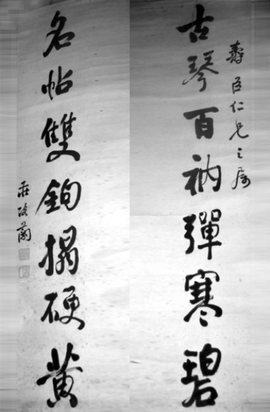 古琴百衲彈寒碧
壽臣仁兄之屬
名帖雙鉤搨硬黃
莊蘭